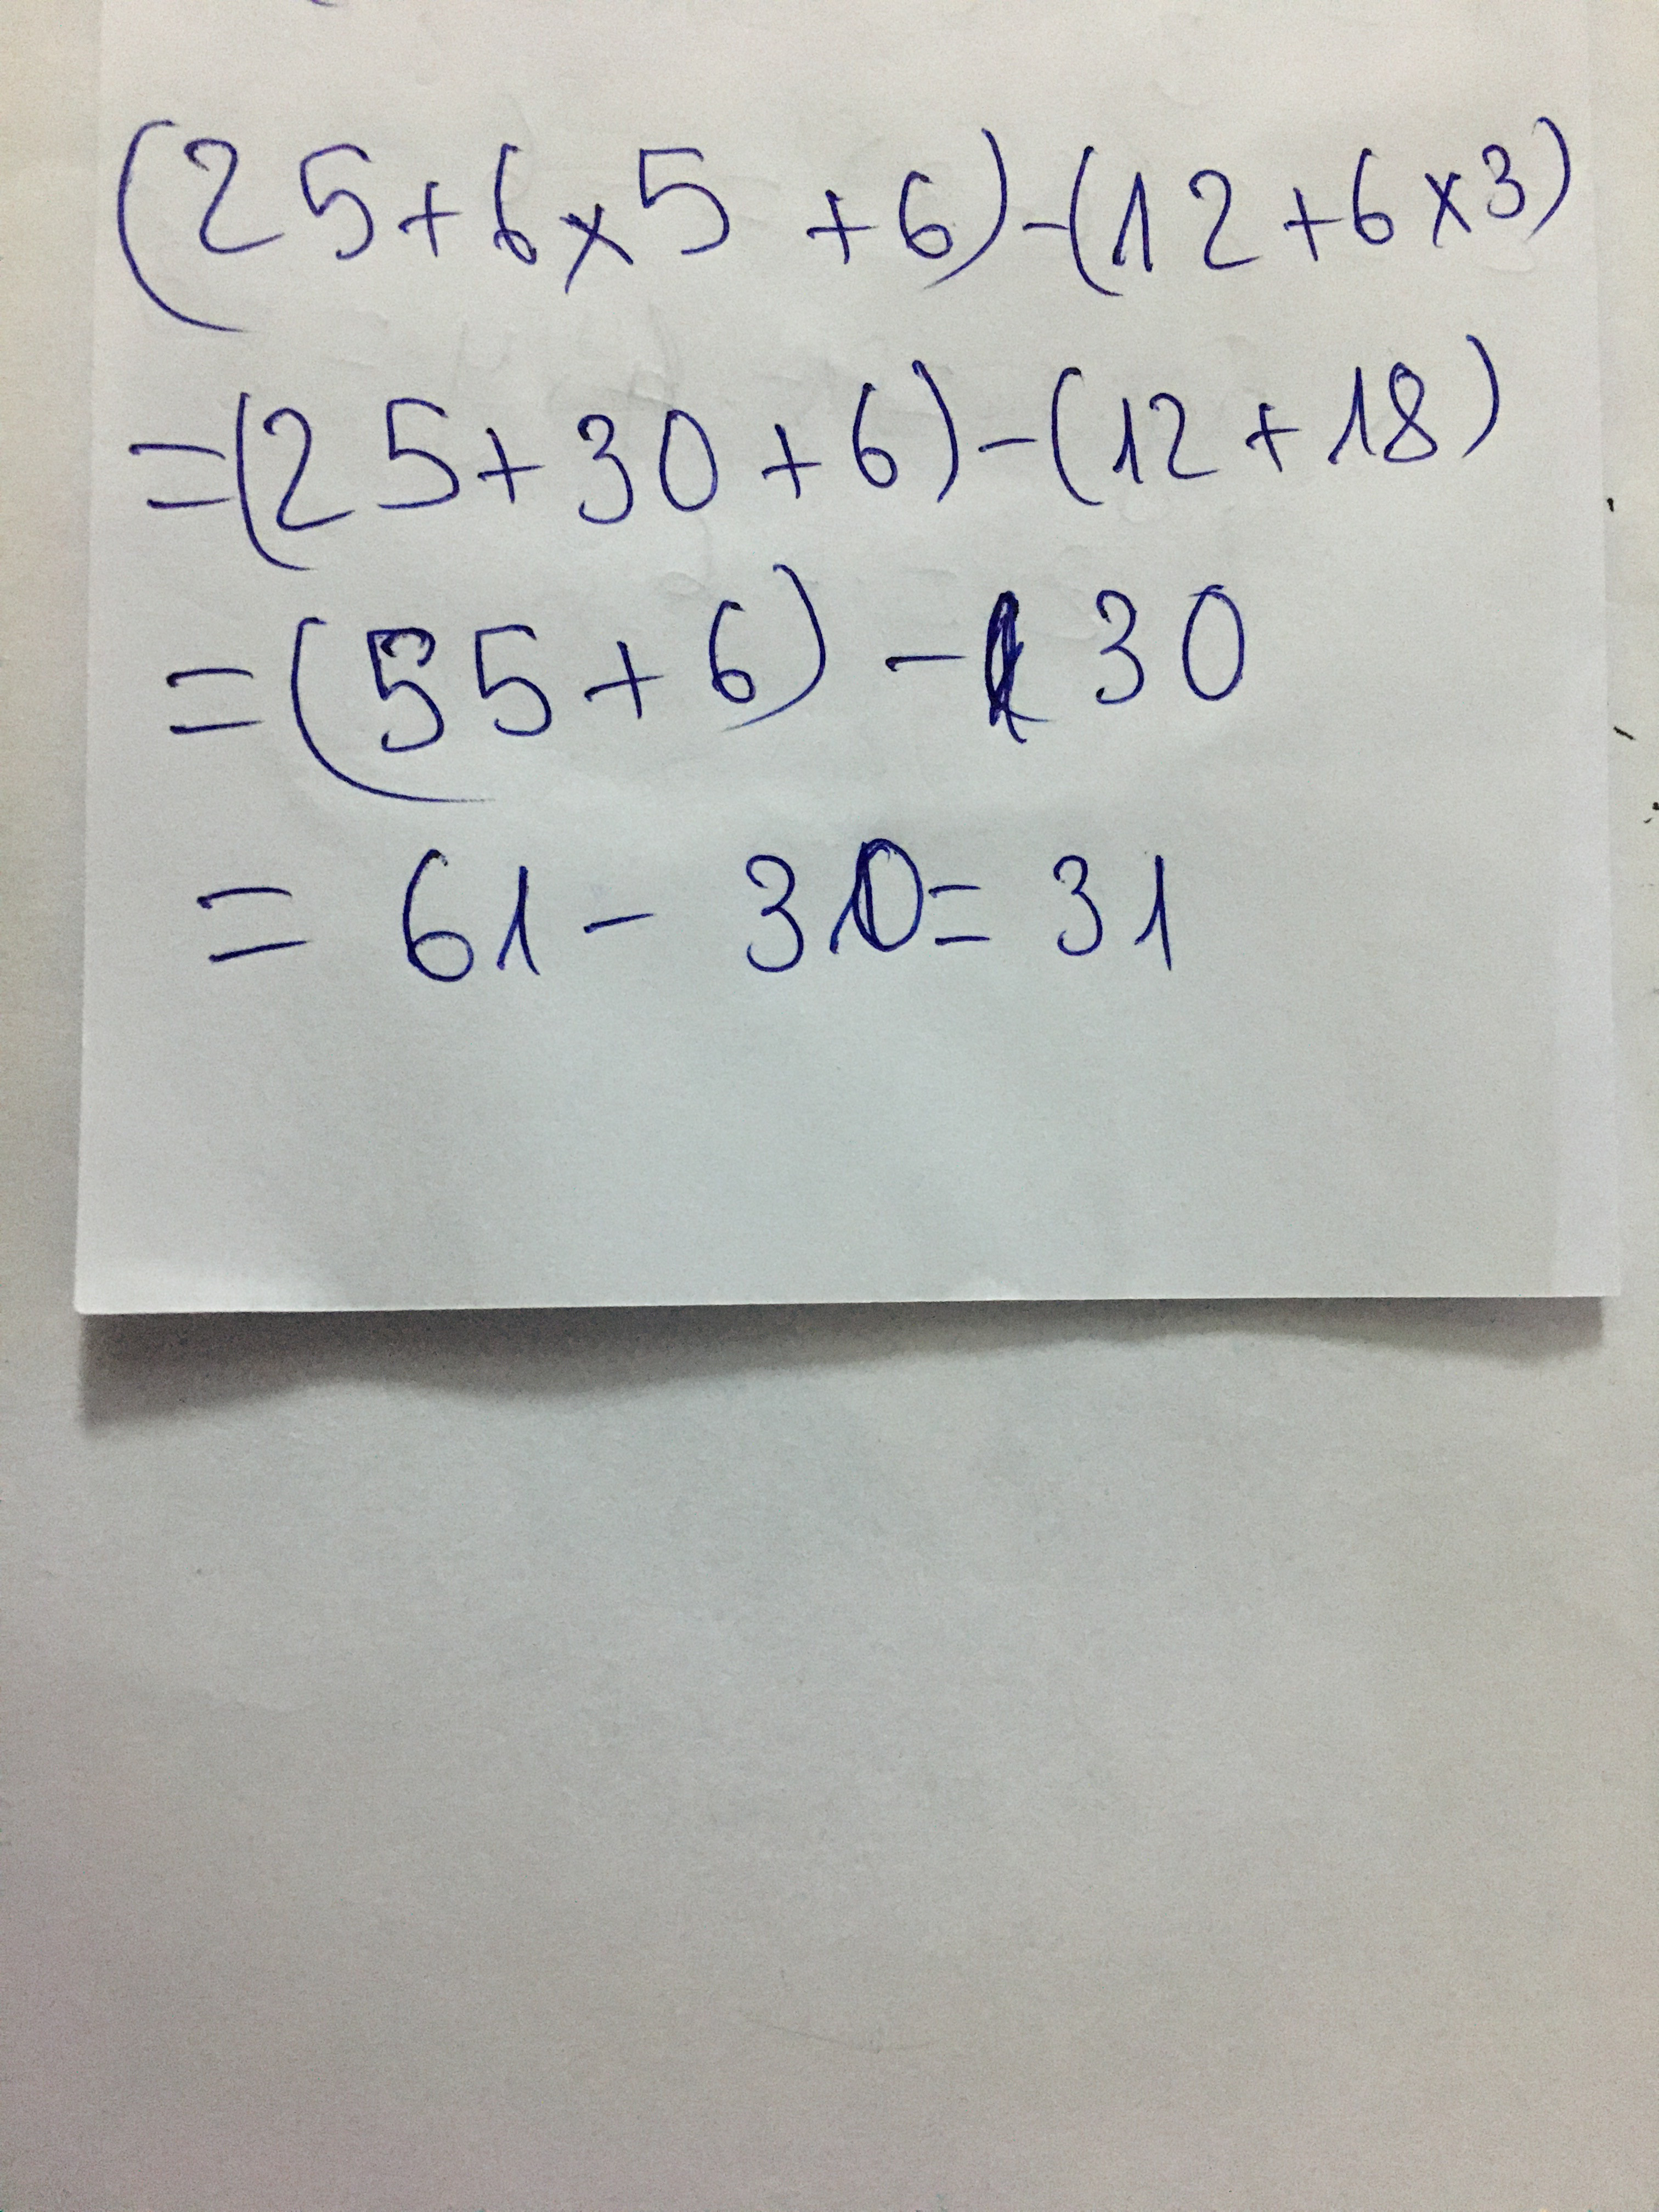 (25+6×5+6)-(12+6×3)
=(25+30+6)-(12+18)
=(55+6)-30
=61-30=31